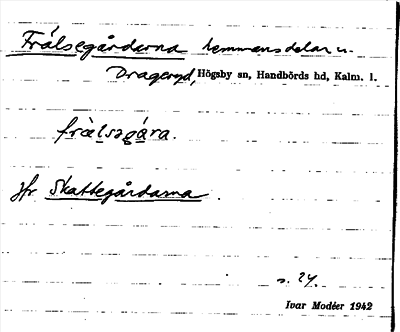 Frälsegårdarna hemmansdelar u.
Drageryd, Högsby sn, Handbörds hd, Kalm. l.
frälsəgára.
Jfr Skattegårdarna.
s. 24.
Ivar Modéer 1942